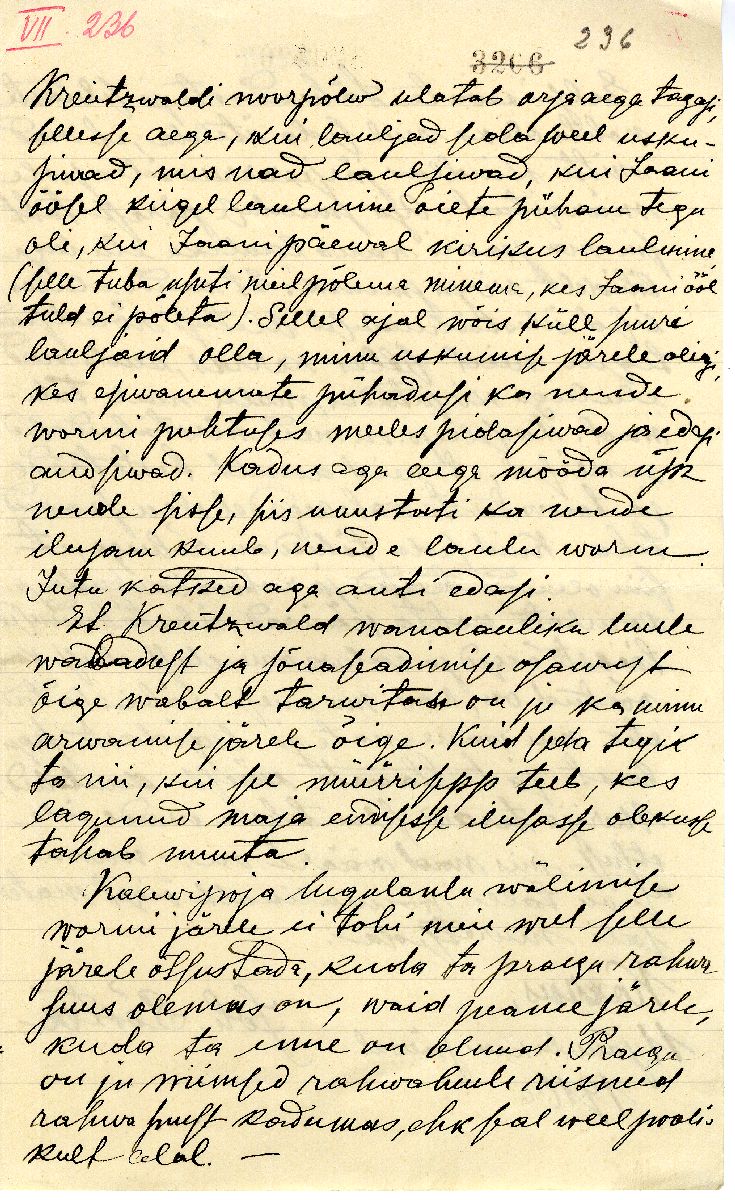 VII. 236
3206
236
Kreutzwaldi noorpõlw ulatab orjaaega tagasi,
sellesse aega, kui lauljad seda weel usku-
siwad, mis nad laulsiwad, kui Jaani
öösel kiigel laulmine õiete püham tegu
oli, kui Jaani päewal kirikus laulmine
(selle tuba usuti meil põlema minema, kes Jaani ööl
tuld ei põleta). Sellel ajal wõis küll suuri
lauljaid olla, minu uskumise järele oligi,
kes esiwanemate pühadusi ka nende
wormi puhtuses meeles pidasiwad ja edasi
andsiwad. Kadus aga aega mööda usk
nende sisse, siis muustati ka nende
ilusam kuub, nende laulu worm.
Jutu katked aga anti edasi.
Et Kreutzwald wanalauliku luule
wabadust ja sõnaseadimise osawust
õige wabalt tarwitas on ju ka minu
arwamise järele õige. Kuid seda tegi
ta nii, kui se müürissepp teeb, kes
lagunud maja endisesse ilusasse olekusse
tahab muuta.
Kalewipoja lugulaulu wälimise
wormi järele ei tohi meie weel selle
järele otsustada, kuda ta praegu rahwa
suus olemas on, waid peame järele,
kuda ta enne on olnud. Praegu
on ju wiimsed rahwaluule riismed
rahwa suust kadumas, ehk seal weel pooli-
kult alal. —